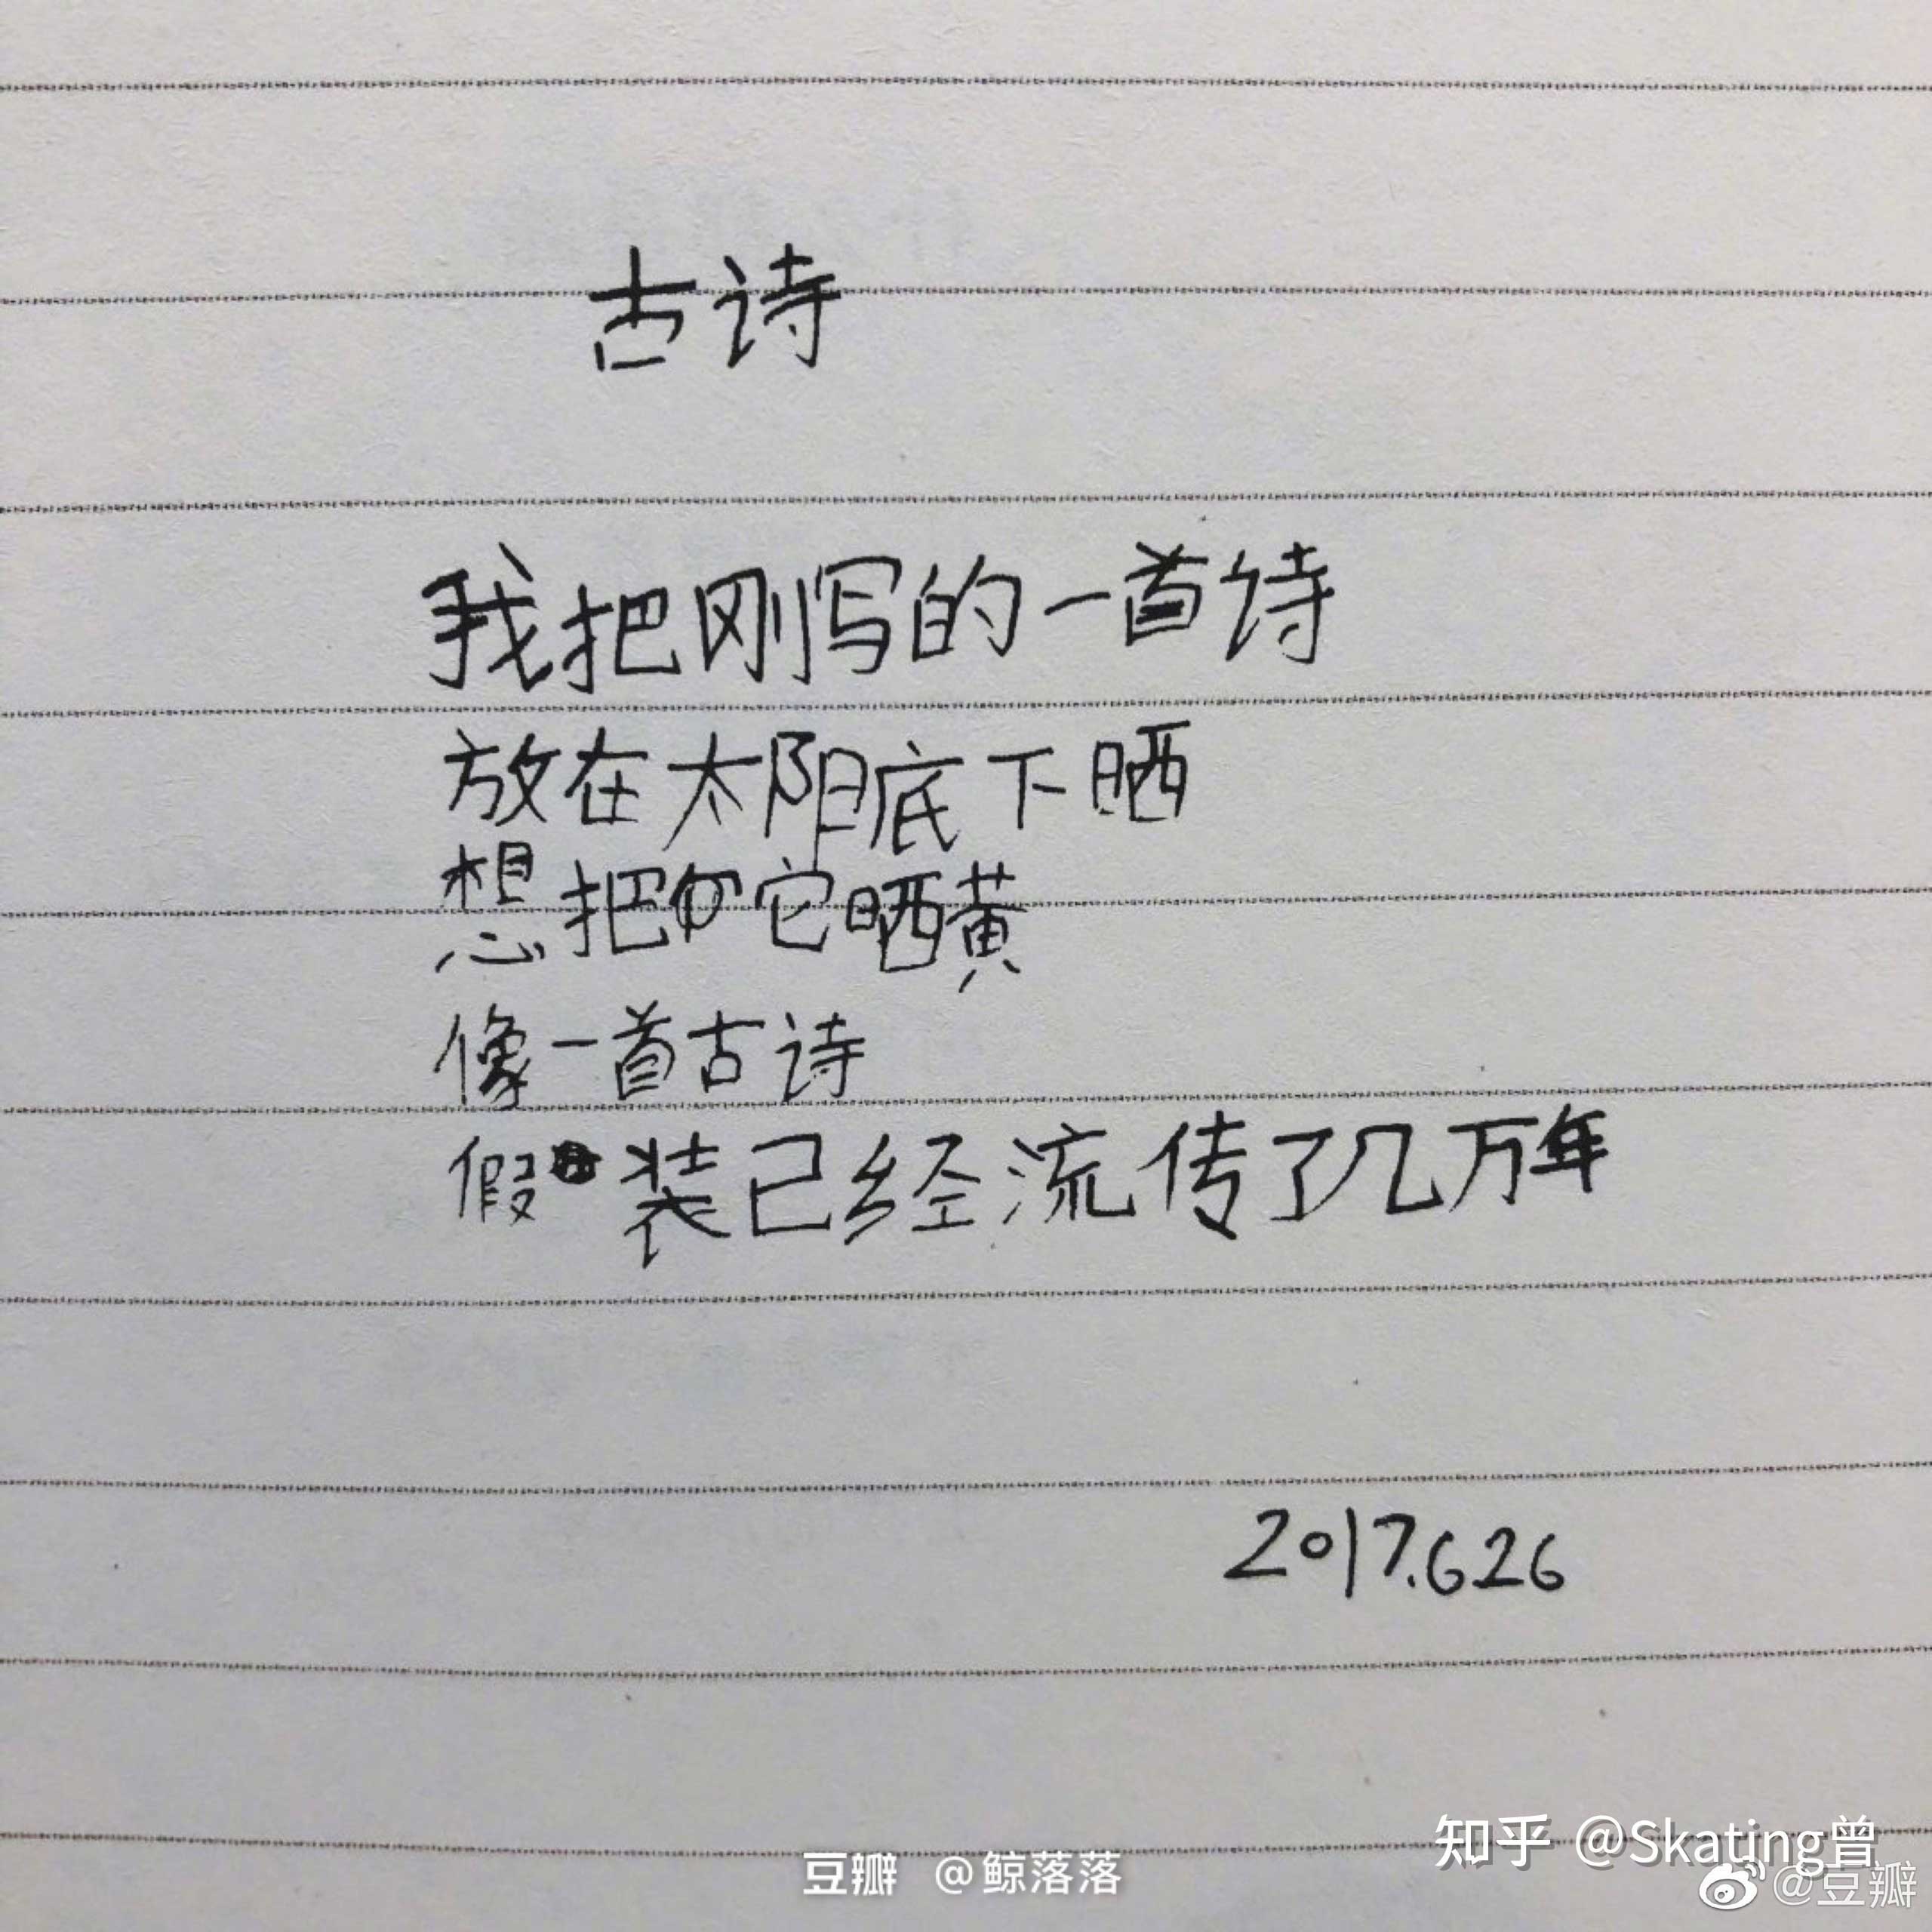 古诗
我把刚写的一首诗
放在太阳底下晒
想把它晒黄
像一首古诗
假装已经流传了几万年
2017.626
知乎 @Skating曾
豆瓣 @鲸落落
@豆瓣